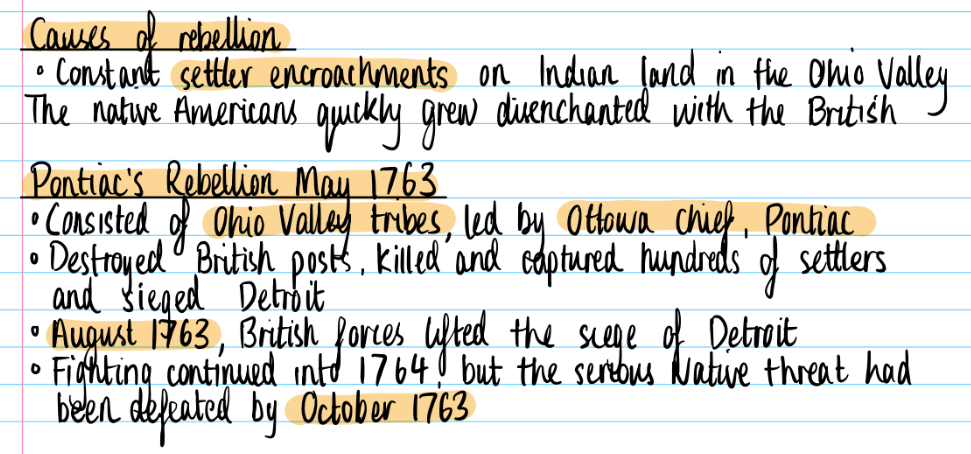 Causes of rebellion
• Constant settler encroachments on Indian land in the Ohio Valley
The native Americans quickly grew disenchanted with the British
Pontiac's Rebellion May 1763
• Consisted of Ohio Valley tribes, led by Ottowa chief, Pontiac
• Destroyed British posts, killed and captured hundreds of settlers
and sieged Detroit
• August 1763, British forces lifted the siege of Detroit
• Fighting continued into 1764, but the serious Native threat had
been defeated by October 1763